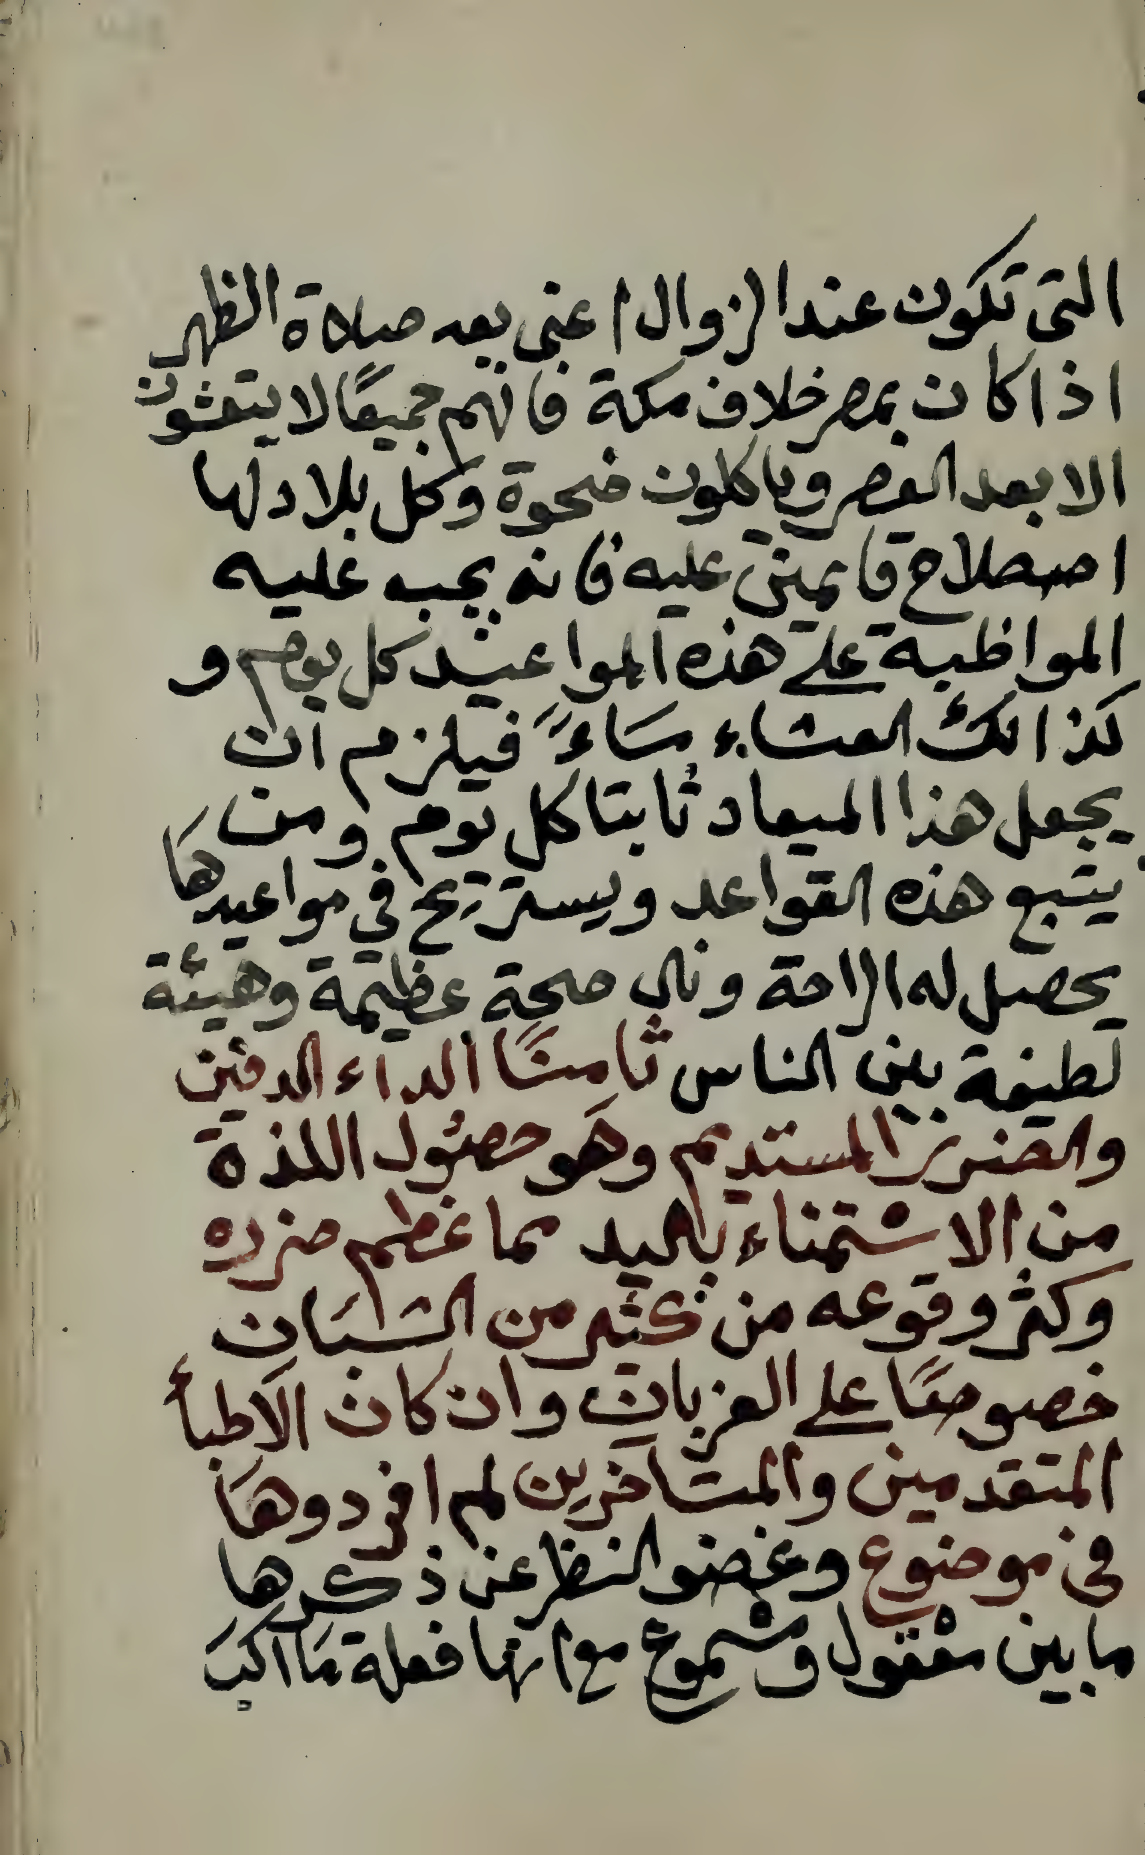 التى تكون عند الزوال اعنى بعد صلاة الظهر
اذا كان بمصر خلاف مكة فانهم جميعًا لا يتعشون
الا بعد العصر وياكلون ضحوة وكل بلاد لها
اصطلاح قايمين عليه فانه يجب عليه
المواظبة على هذه المواعيد كل يوم و
كذالك العشاء مساءً فيلزم ان
يجعل هذا الميعاد ثابتا كل يوم ومن
يتبع هذه القواعد ويستريح فى مواعيدها
يحصل له الراحة ونال صحة عظيمة وهيئة
لطيفة بين الناس ثامنًا الداء الدفين
والضرر المستديم وهو حصول اللذة
من الاستمناء باليد مما عظم ضرره
وكثر وقوعه من كثير من الشبان
خصوصًا على العزبان وان كان الاطبأ
المتقدمين والمتاخرين لم افردوها
فى موضوع وغضو النظر عن ذكرها
ما بين معقول ومشموع مع انها فعلة ما اكبر